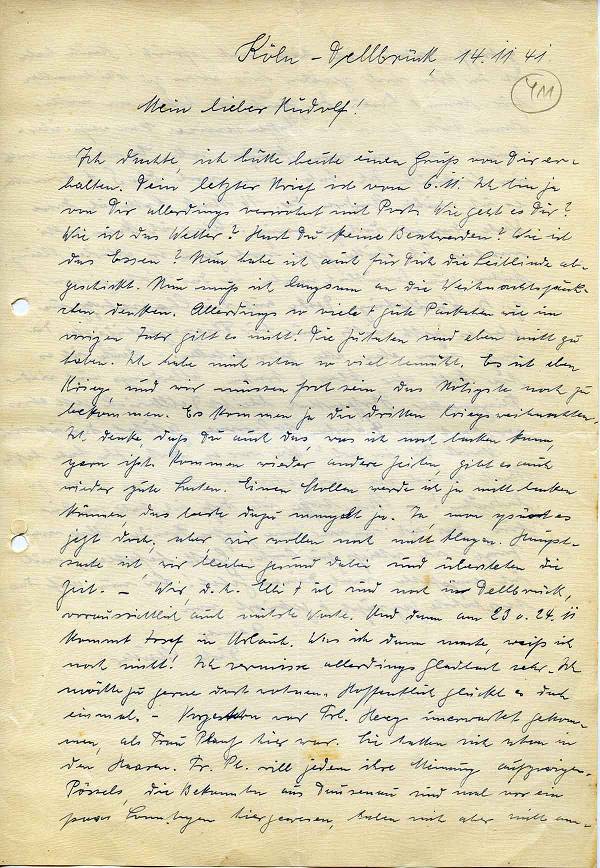 Köln-Dellbrück, 14.11.41.
411
Mein lieber Rudolf!
Ich dachte, ich hätte heute einen Gruß von Dir er-
halten. Dein letzter Brief ist vom 6.11. Ich bin ja
von Dir allerdings verwöhnt mit Post. Wie geht es Dir?
Wie ist das Wetter? Hast Du keine Beschwerden? Wie ist
das Essen? Nun habe ich auch für Dich die Leibbinde ab-
geschickt. Nun muß ich langsam an die Weihnachtspäck-
chen denken. Allerdings so viele + gute Päckchen wie im
vorigen Jahr gibt es nicht! Die Zutaten sind eben nicht zu
haben. Ich habe mich schon so viel bemüht. Es ist eben
Krieg und wir müssen froh sein, das Nötigste noch zu
bekommen. Es kommen ja die dritten Kriegsweihnachten.
Ich denke, daß Du auch das, was ich noch backen kann,
gern ißt. Kommen wieder andere Zeiten, gibt es auch
wieder gute Sachen. Einen Stollen werde ich ja nicht backen
können, das dazu mangelt ja. Ja, man spürt es
jetzt doch, aber wir wollen noch nicht klagen. Haupt-
sache ist, wir bleiben gesund dabei und überstehen die
Zeit. – Wir, d.h. Elli + ich sind noch in Dellbrück,
voraussichtlich auch nächste Woche. Und dann am 23 o. 24.11
kommt Josef in Urlaub. Was ich dann mache, weiß ich
noch nicht! Ich vermisse allerdings Gladbach sehr. Ich
möchte zu gerne dort wohnen. Hoffentlich glückt es doch
einmal. – Vorgestern war Frl. unerwartet gekom-
men, als Frau hier war. Sie hatten sich schon in
den Haaren. Fr. Pl. will jeden ihre Meinung aufzwingen.
die Bekannten aus Dausenau sind mal vor ein
paar Sonntagen hiergewesen, haben mich aber nicht an-